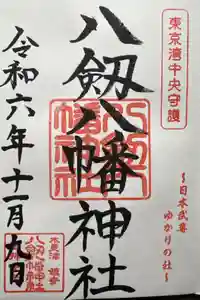 東京湾中央守護
八剱八幡神社
〜日本武尊
ゆかりの社〜
令和六年十一月九日
八剱八幡神社
木更津 鎮守
八剱八幡神社